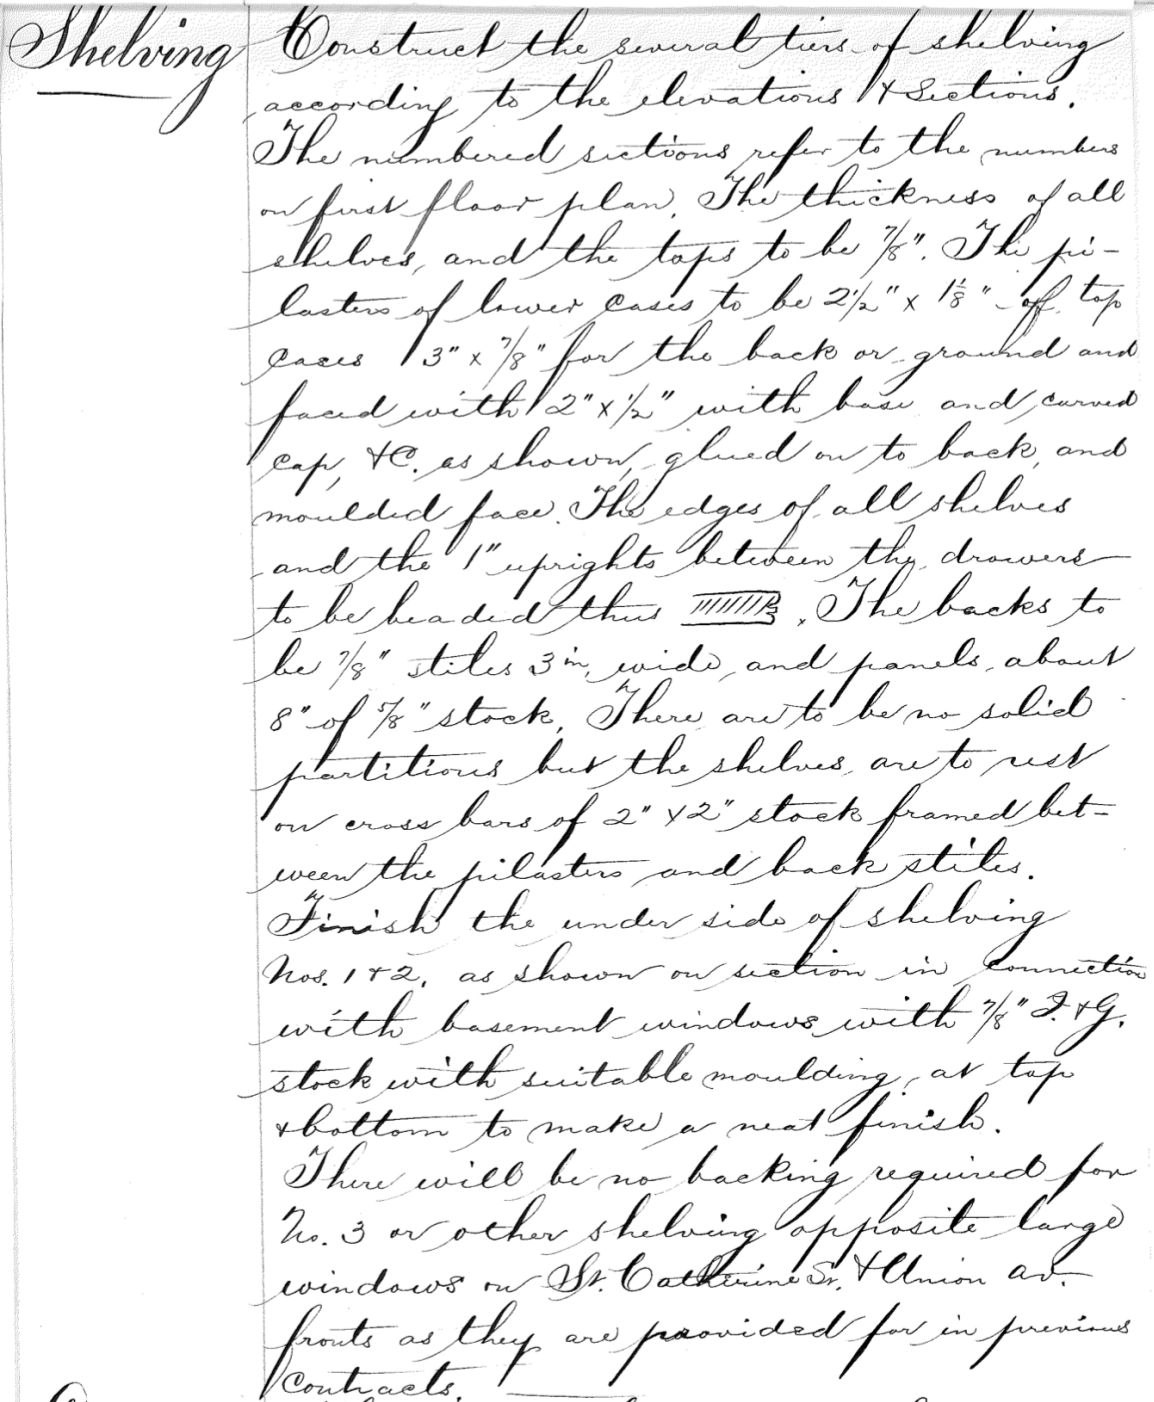 Shelving
Construct the several tiers of shelving
according to the elevations & Sections.
The numbered sections refer to the numbers
on first floor plan. The thickness of all
shelves, and the tops to be 7/8". The pi-
lasters of lower cases to be 2 1/2" x 1 1/8" - of top
cases 3" x 7/8" for the back or ground and
faced with 2" x 1/2" with base and carved
cap, &C. as shown, glued on to back, and
moulded face. The edges of all shelves
and the 1" uprights between the drawers
to be beaded thus . The backs to
be 7/8" stiles 3 in. wide, and panels, about
8" of 5/8" stock. There are to be no solid
partitions but the shelves are to rest
on cross bars of 2" x 2" stock framed bet-
ween the pilasters and back stiles.
Finish the under side of shelving
Nos. 1 & 2, as shown on section in connection
with basement windows with 7/8" T. & G.
stock with suitable moulding, at top
& bottom to make a neat finish.
There will be no backing required for
No. 3 or other shelving opposite large
windows on St. Catherine St. & Union av.
fronts as they are provided for in previous
contracts.